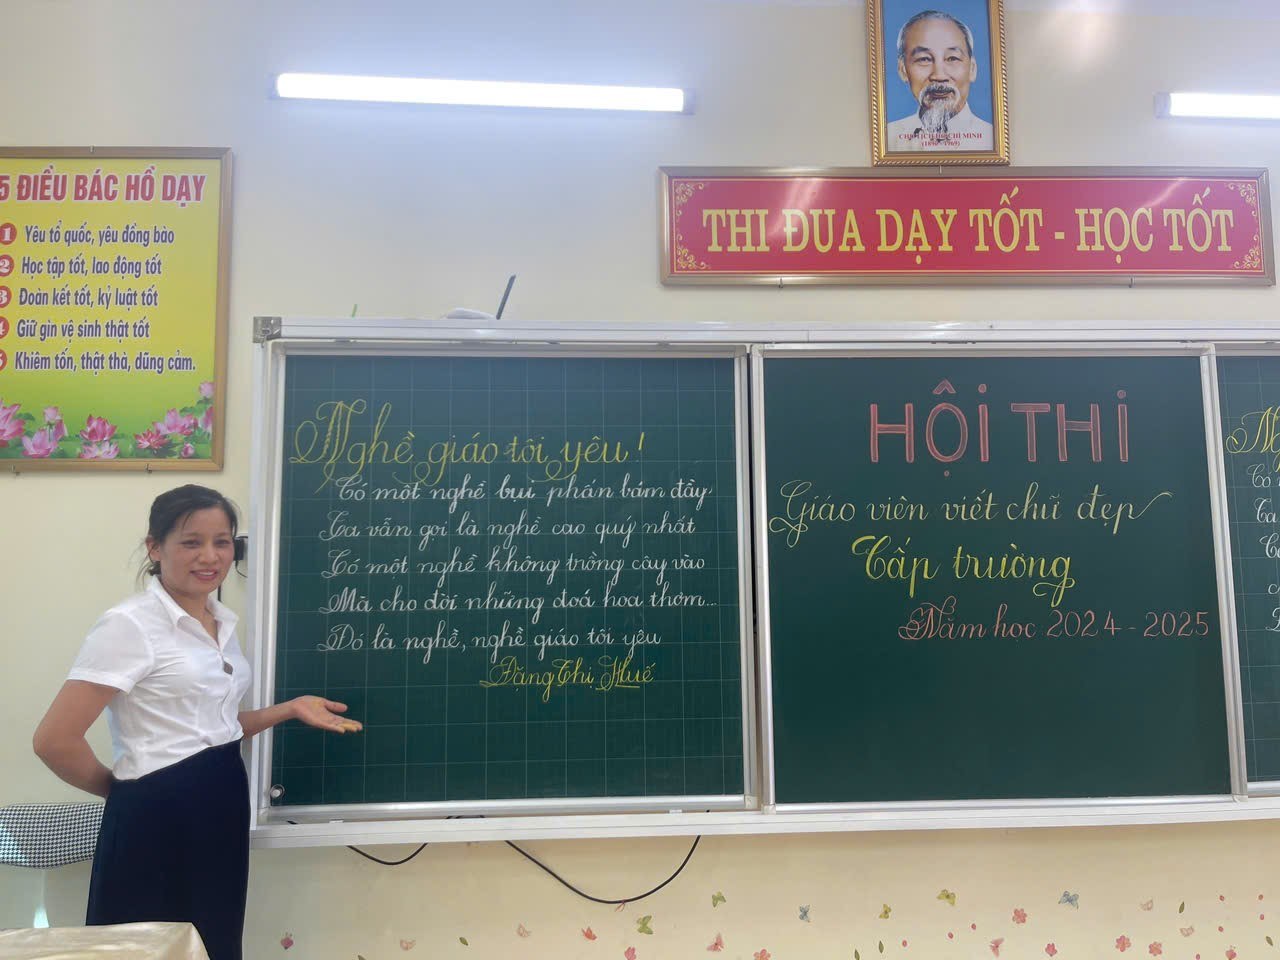 CHỦ TỊCH HỒ CHÍ MINH
(1890 - 1969)
5 ĐIỀU BÁC HỒ DẠY
1 Yêu tổ quốc, yêu đồng bào
2 Học tập tốt, lao động tốt
3 Đoàn kết tốt, kỷ luật tốt
4 Giữ gìn vệ sinh thật tốt
5 Khiêm tốn, thật thà, dũng cảm.
THI ĐUA DẠY TỐT - HỌC TỐT
Nghề giáo tôi yêu!
Có một nghề bụi phấn bám đầy
Ta vẫn gọi là nghề cao quý nhất
Có một nghề không trồng cây vào
Mà cho đời những đoá hoa thơm...
Đó là nghề, nghề giáo tôi yêu
Đặng Thị Huế
HỘI THI
Giáo viên viết chữ đẹp
Cấp trường
Năm học 2024 - 2025